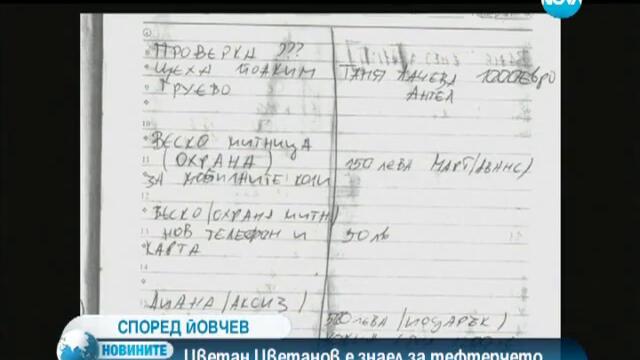 NOVA
ПРОВЕРКА ???
ЦЕХА ЙОАКИМ ТАНЯ 1000 ЕВРО
ГРУЕВО АНГЕЛ
ВЕСКО МИТНИЦА
(ОХРАНА) 150 ЛЕВА МАРТ/АВАНС)
ЗА МОБИЛНИТЕ КОЛИ
ВЕСКО/ОХРАНА МИТН)
НОВ ТЕЛЕФОН И 50 ЛВ
КАРТА
ДИАНА/АКСИЗ)
500 ЛЕВА/ПОДАРЪК)
СПОРЕД ЙОВЧЕВ
НОВИНИТЕ
Цветан Цветанов е знаел за тефтерчето